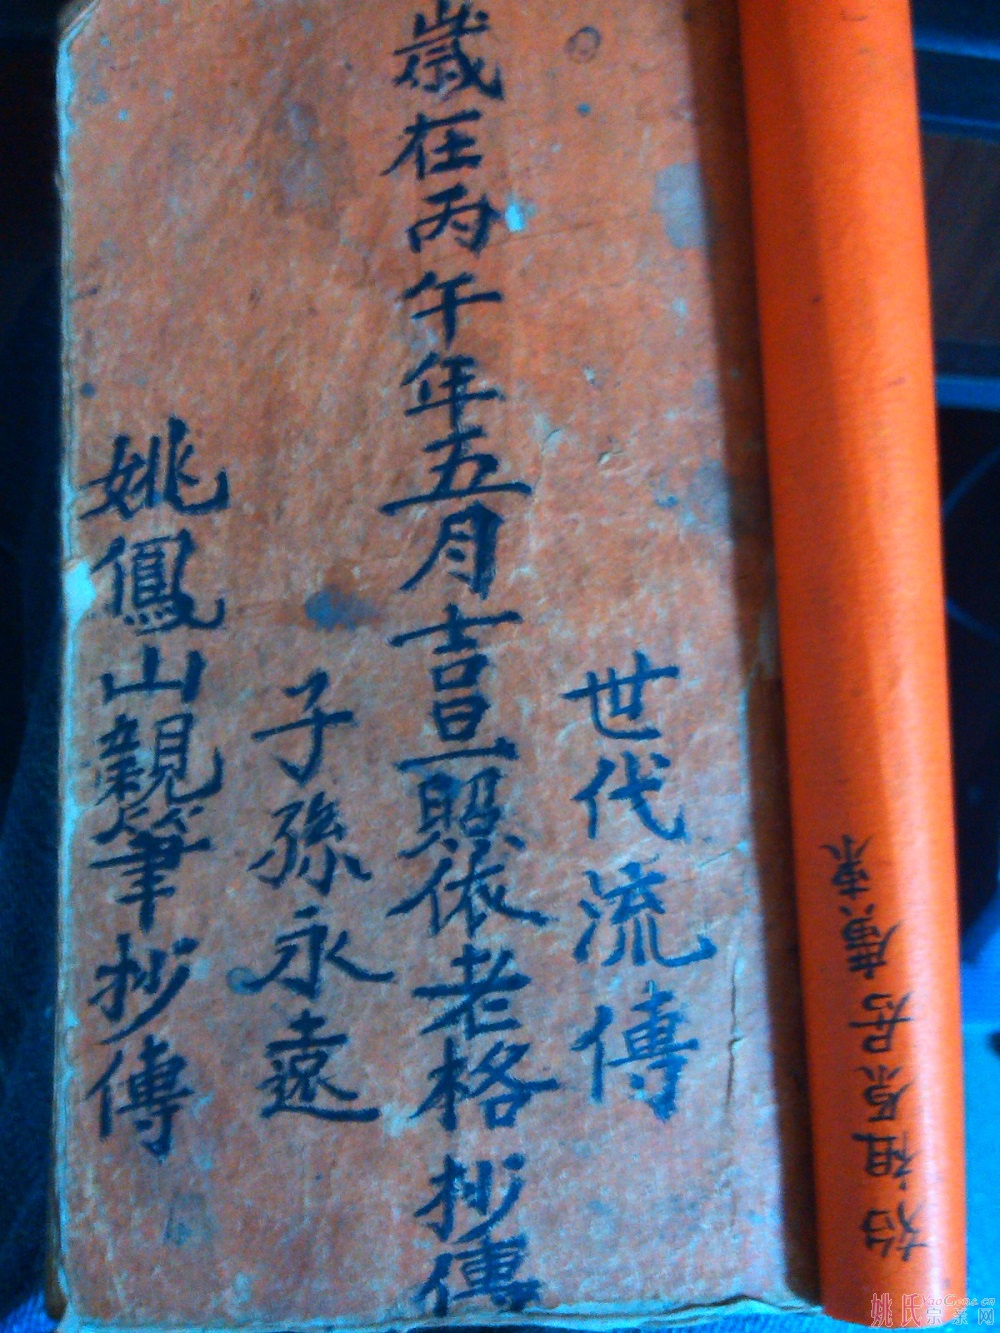 世代流傳
歲在丙午年五月吉旦照依老格抄傳
子孫永遠
姚鳳山親筆抄傳
始祖原居廣東
姚氏宗亲网
YaoGens.cn